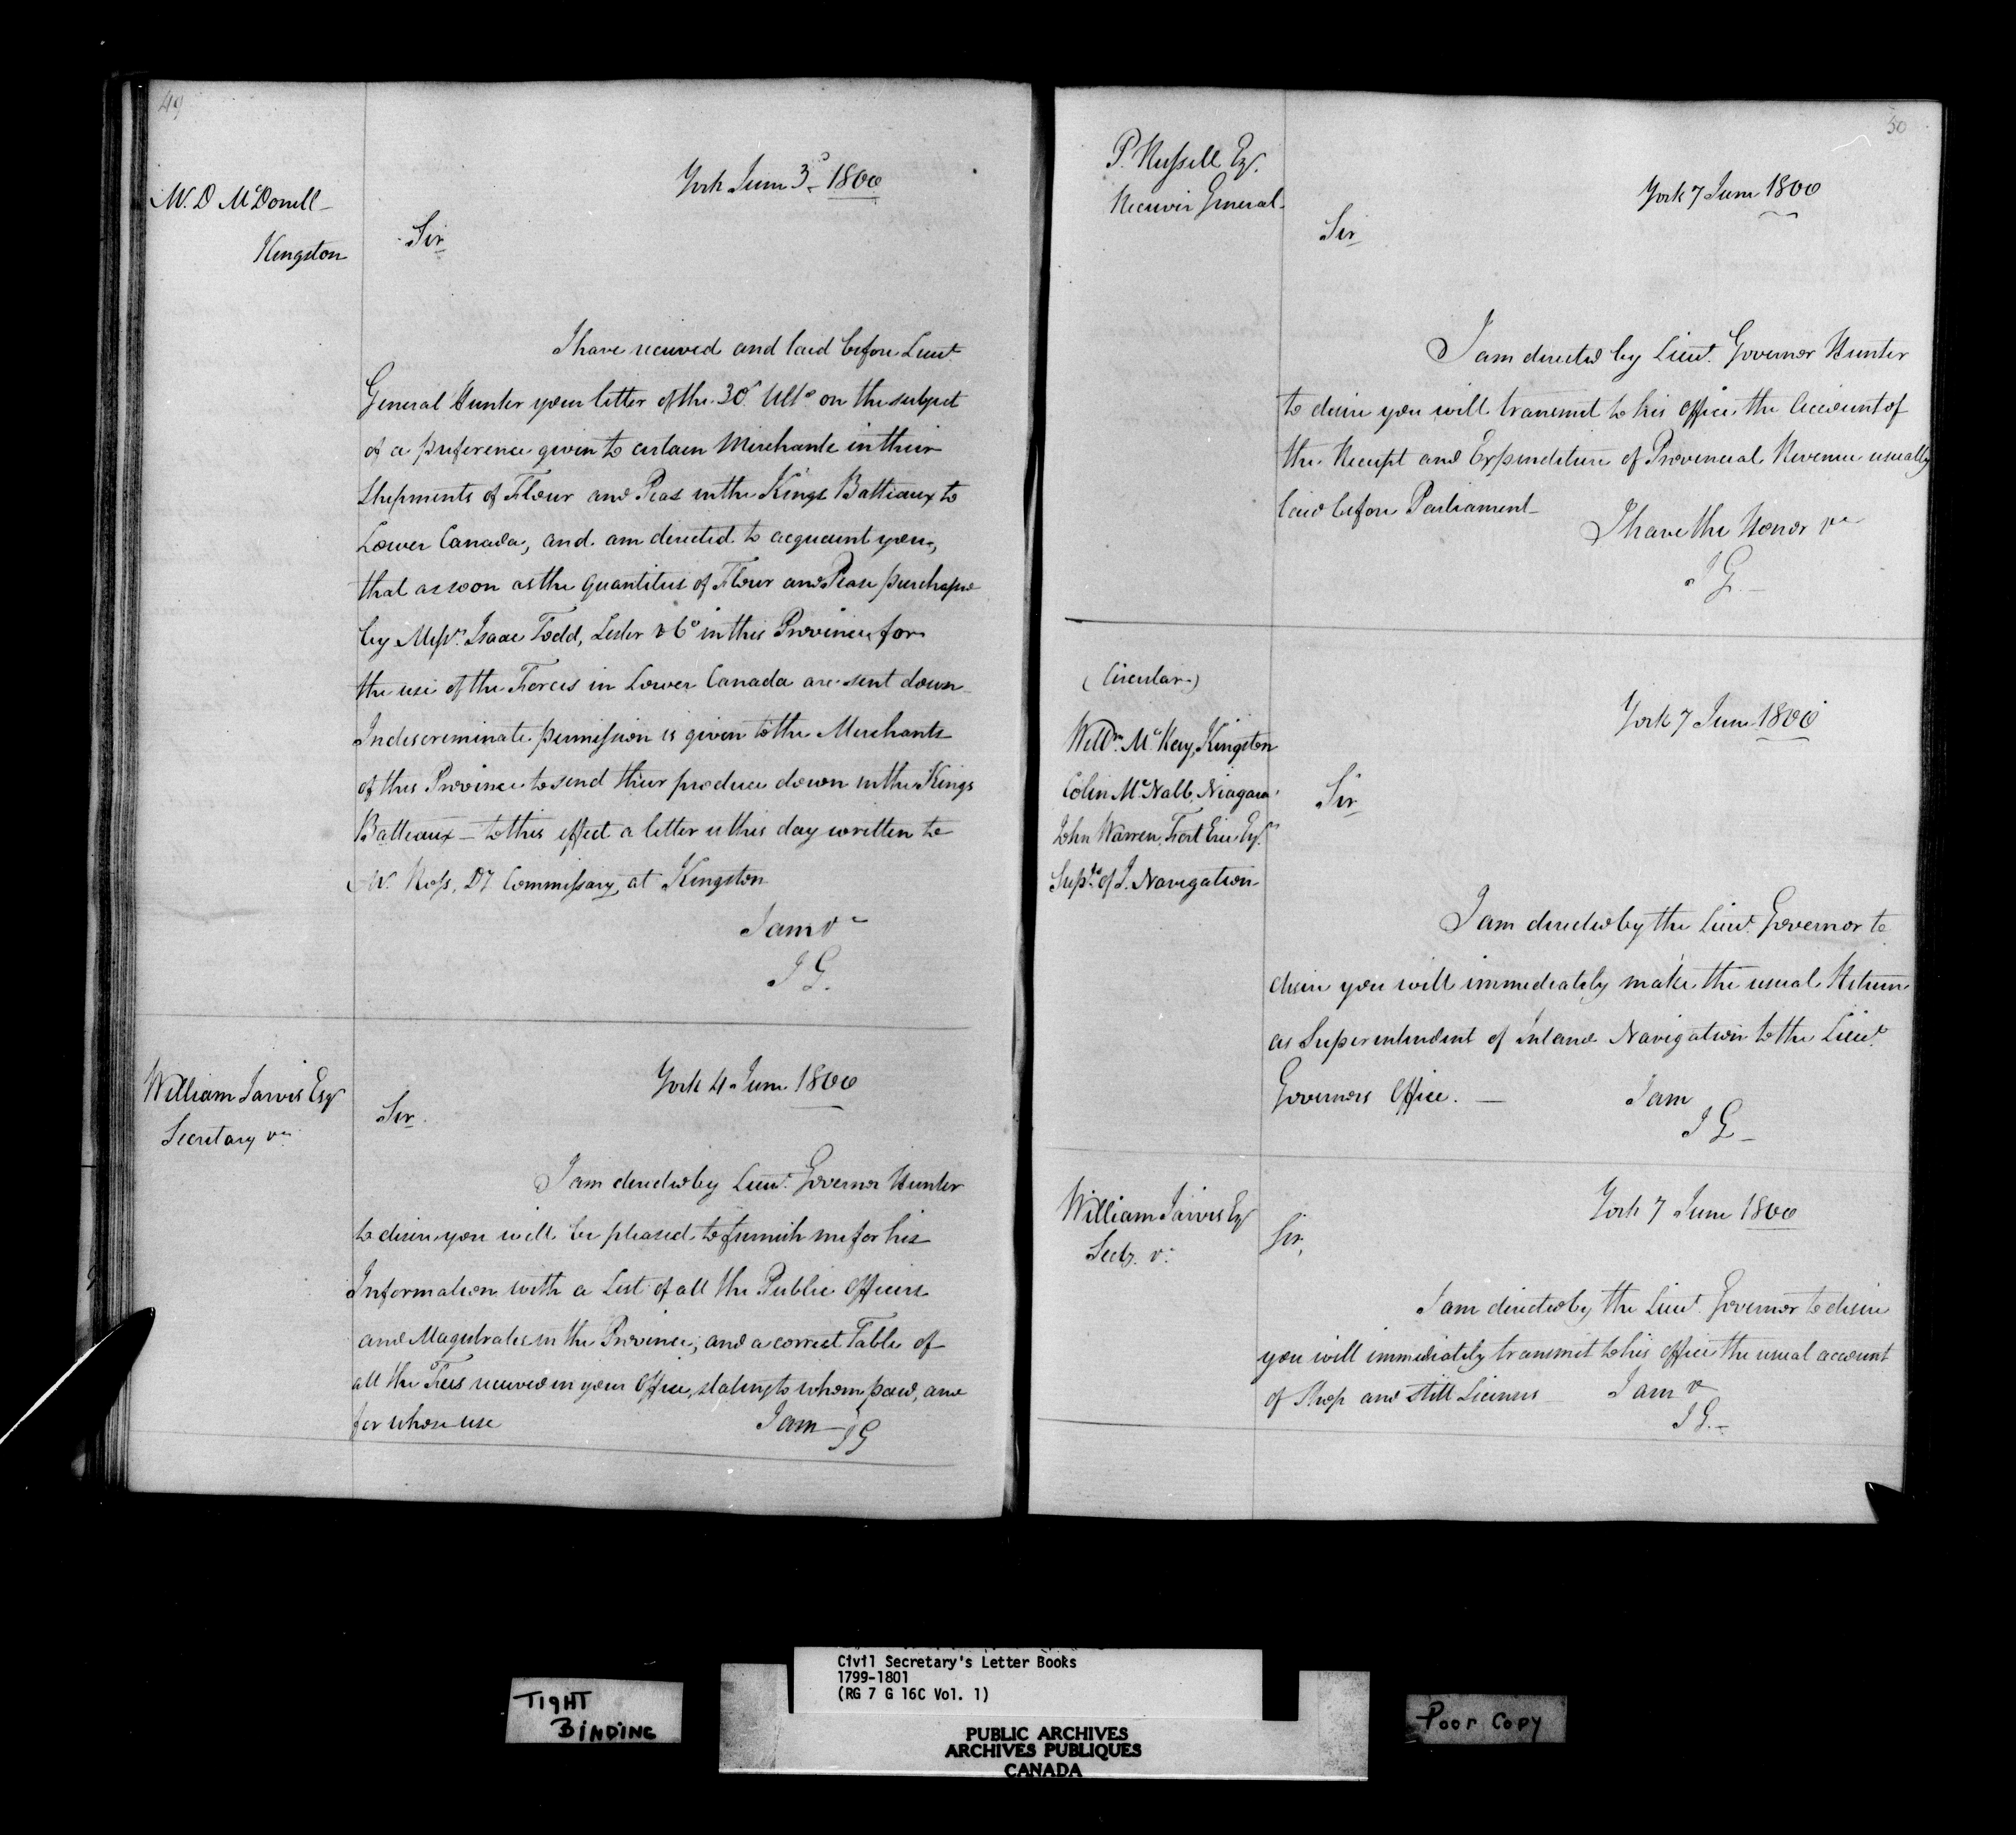 49
Mr. D McDonell
Kingston
York June 3d 1800
Sir
I have received and laid before Lieut
General Hunter your letter of the 30th Ulto on the subject
of a preference given to certain Merchants in their
Shipments of Flour and Peas in the Kings Batteaux to
Lower Canada, and am directed to acquaint you,
that as soon as the quantities of Flour and Pease purchased
by Messrs. Isaac Todd, Lester & Co in this Province for
the use of the Forces in Lower Canada are sent down
Indiscreminate permission is given to the Merchants
of this Province to send their produce down in the Kings
Batteaux — to this effect a letter is this day written to
Mr. Ross, Dy Commissary, at Kingston
I am &c
J G.
William Jarvis Esqr
Secretary &c
York 4 June 1800
Sir
I am directed by Lieut. Governor Hunter
to desire you will be pleased to furnish me for his
Information with a List of all the Public Officers
and Magistrates in the Province, and a correct Table of
all the Fees received in your Office, stating to whom paid, and
for whose use
I am
J G
50
P. Russell Esqr.
Receiver General
York 7 June 1800
Sir
I am directed by Lieut. Governor Hunter
to desire you will transmit to his office the Account of
the Receipt and Expenditure of Provincial Revenue usually
laid before Parliament
I have the Honor &c
J G.
(Circular)
Willm. McKay, Kingston
Colin McNabb, Niagara
John Warren, Fort Erie Esqrs
Supts. of I. Navigation
York 7 June 1800
Sir
I am directed by the Lieut. Governor to
desire you will immediately make the usual Return
as Superintendent of Inland Navigation to the Lieut.
Governors Office. —
I am
J G
William Jarvis Esqr
Secty. &c
York 7 June 1800
Sir,
I am directed by the Lieut. Governor to desire
you will immediately transmit to his office the usual account
of Shop and Still Licenses
I am &c
J G.
TIGHT
BINDING
Civil Secretary's Letter Books
1799-1801
(RG 7 G 16C Vol. 1)
PUBLIC ARCHIVES
ARCHIVES PUBLIQUES
CANADA
Poor Copy